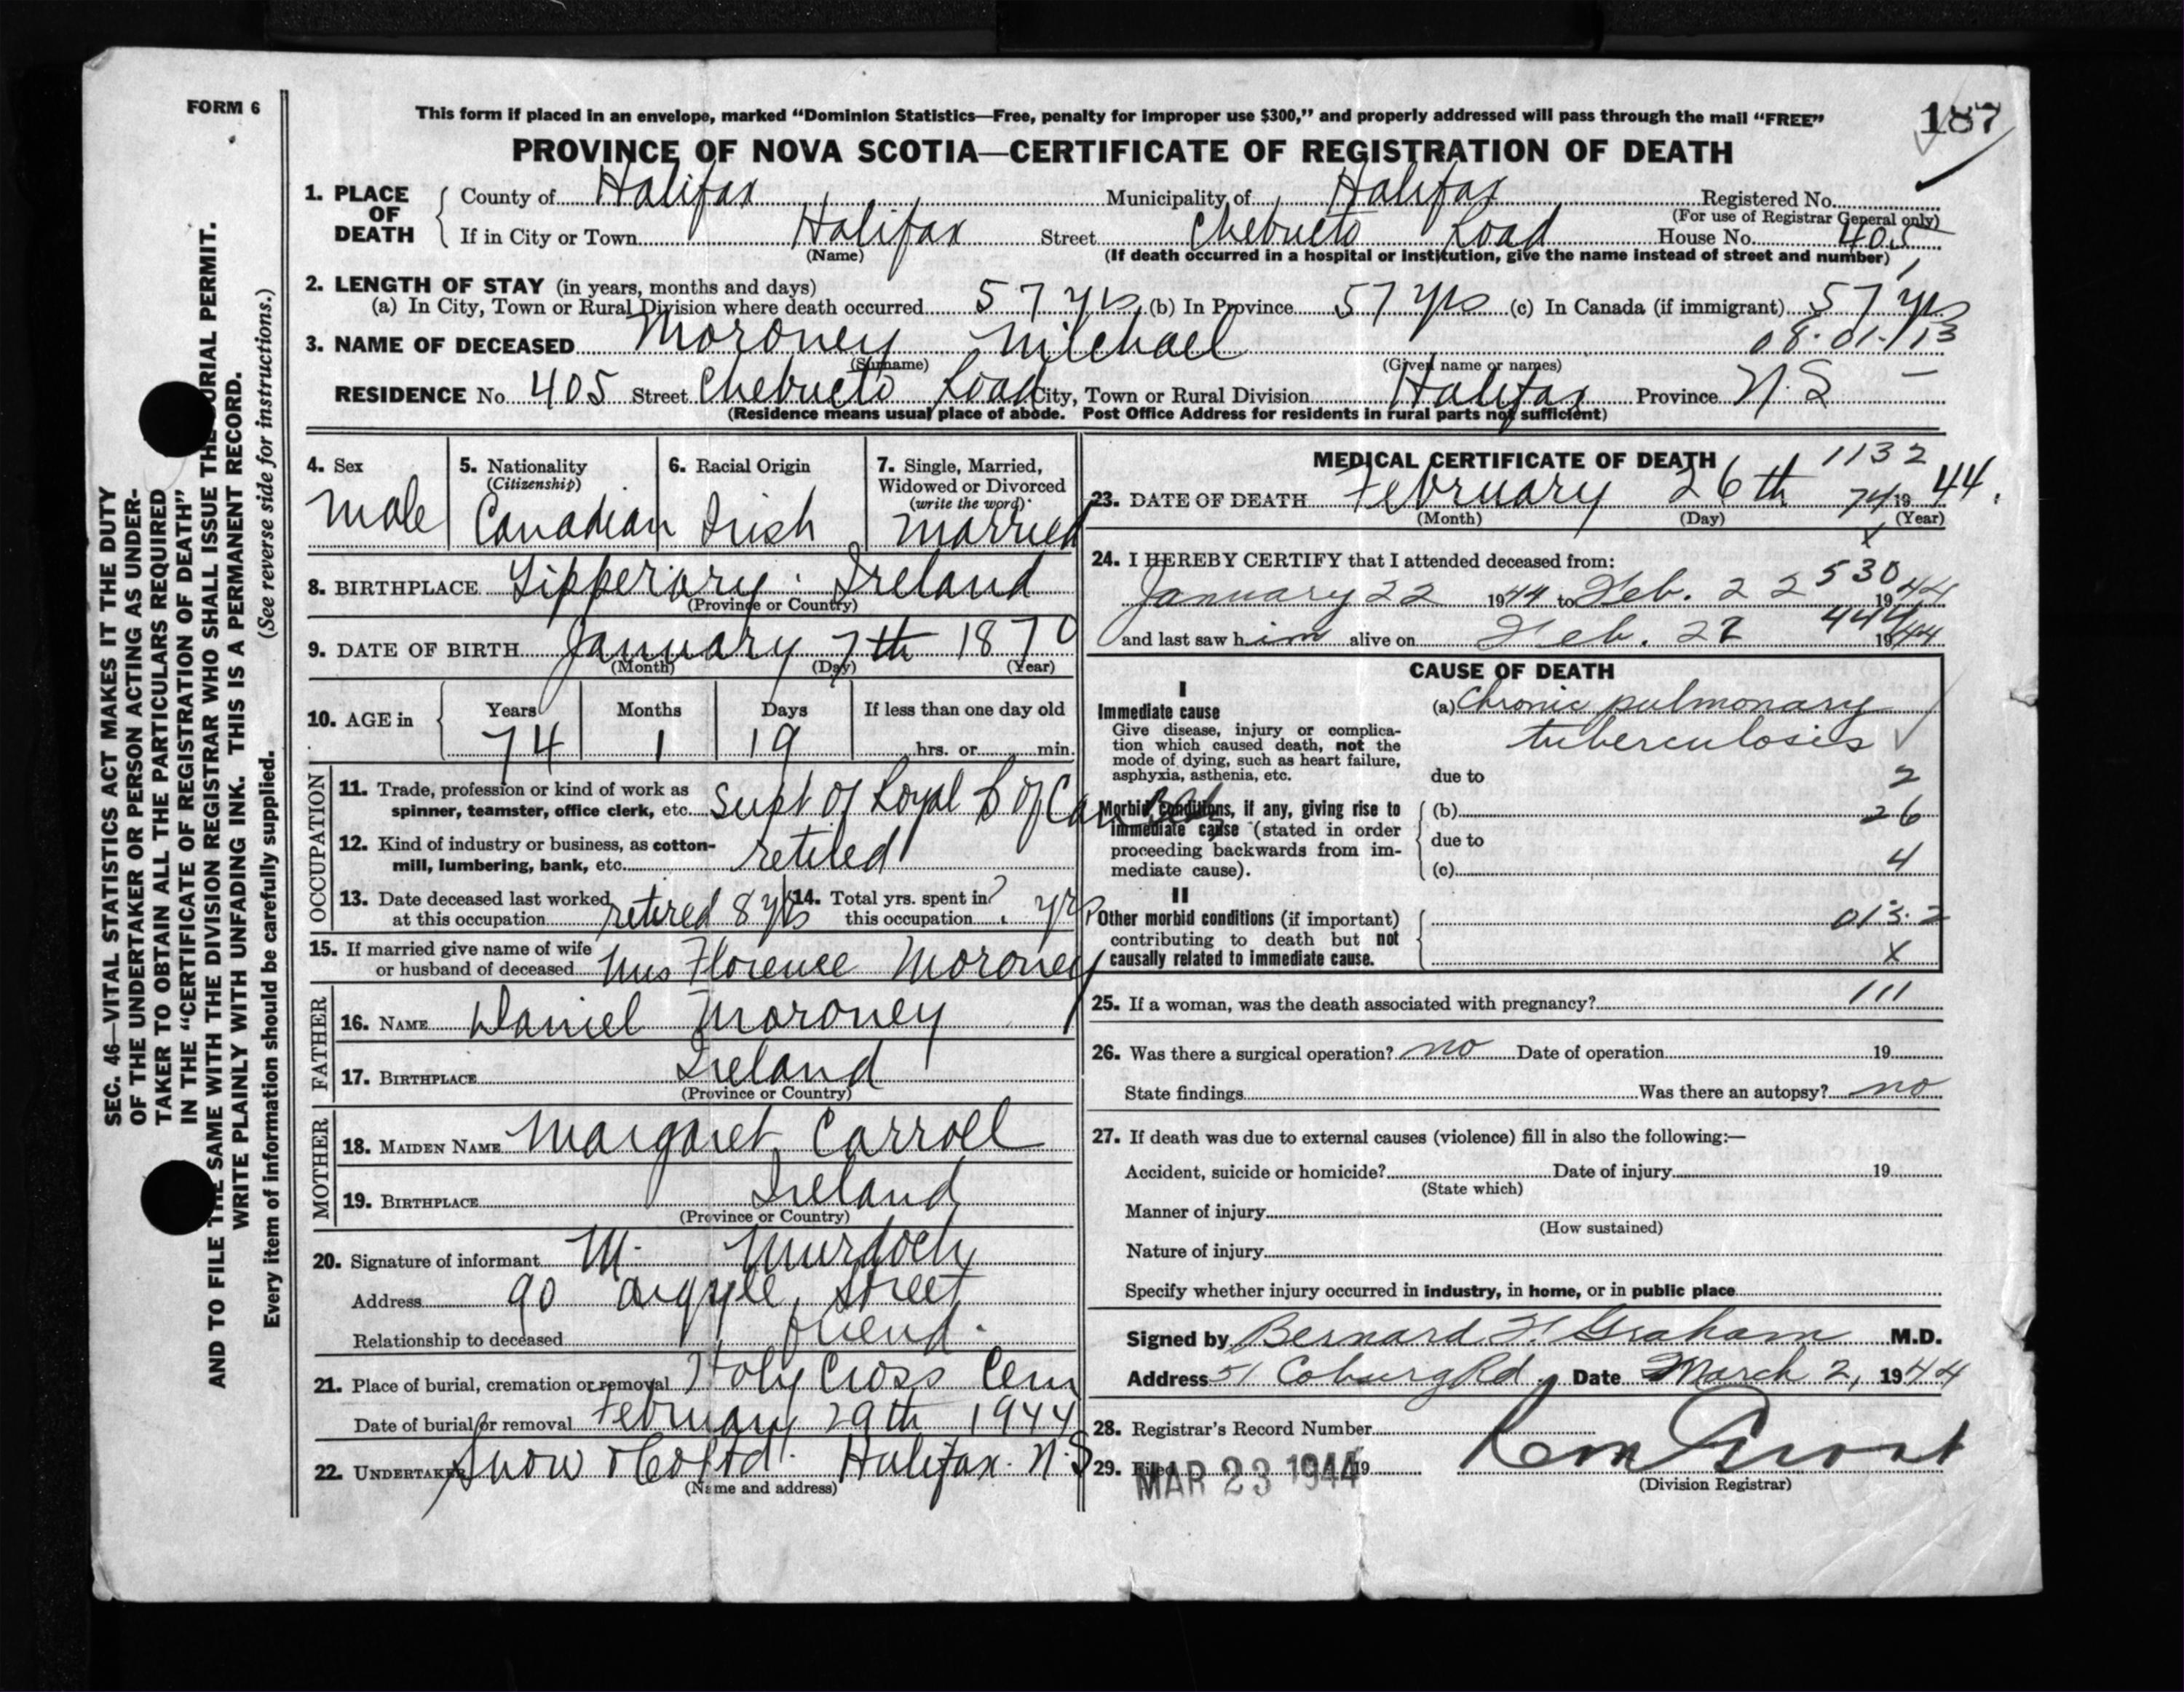 FORM 6
This form if placed in an envelope, marked "Dominion Statistics—Free, penalty for improper use $300," and properly addressed will pass through the mail "FREE"
187
PROVINCE OF NOVA SCOTIA—CERTIFICATE OF REGISTRATION OF DEATH
1. PLACE OF DEATH County of Halifax Municipality of Halifax Registered No.
(For use of Registrar General only)
If in City or Town Halifax Street Chebucto Road House No. 405
(Name) (If death occurred in a hospital or institution, give the name instead of street and number)
2. LENGTH OF STAY (in years, months and days)
(a) In City, Town or Rural Division where death occurred 57 yrs (b) In Province 57 yrs (c) In Canada (if immigrant) 57 yrs
3. NAME OF DECEASED Moroney Michael 08.01.113
(Surname) (Given name or names)
RESIDENCE No. 405 Street Chebucto Road City, Town or Rural Division Halifax Province N.S —
(Residence means usual place of abode. Post Office Address for residents in rural parts not sufficient)
4. Sex
male
5. Nationality
(Citizenship)
Canadian
6. Racial Origin
Irish
7. Single, Married,
Widowed or Divorced
(write the word)
married
8. BIRTHPLACE Tipperary. Ireland
(Province or Country)
9. DATE OF BIRTH January 7th 1870
(Month) (Day) (Year)
10. AGE in Years Months Days If less than one day old
74 1 19 hrs. or min.
OCCUPATION
11. Trade, profession or kind of work as
spinner, teamster, office clerk, etc. Supt of Royal B of Can
12. Kind of industry or business, as cotton-
mill, lumbering, bank, etc. retired
13. Date deceased last worked
at this occupation retired 8 yrs
14. Total yrs. spent in
this occupation ? yrs
15. If married give name of wife
or husband of deceased Mrs Florence Moroney
FATHER
16. NAME Daniel Moroney
17. BIRTHPLACE Ireland
(Province or Country)
MOTHER
18. MAIDEN NAME Margaret Carroll
19. BIRTHPLACE Ireland
(Province or Country)
20. Signature of informant M. Murdoch
Address 90 Argyle Street
Relationship to deceased friend.
21. Place of burial, cremation or removal Holy Cross Cem
Date of burial or removal February 29th 1944
22. UNDERTAKER Snow & Co Ltd. Halifax. N.S
(Name and address)
MEDICAL CERTIFICATE OF DEATH 1132
23. DATE OF DEATH February 26th 74 19 44.
(Month) (Day) (Year)
x
24. I HEREBY CERTIFY that I attended deceased from:
530
January 22 1944 to Feb. 22 1944
444
and last saw him alive on Feb. 22 1944
CAUSE OF DEATH
I
Immediate cause
Give disease, injury or complica-
tion which caused death, not the
mode of dying, such as heart failure,
asphyxia, asthenia, etc.
(a) Chronic pulmonary
tuberculosis
due to 2
Morbid conditions, if any, giving rise to
immediate cause (stated in order
proceeding backwards from im-
mediate cause).
(b) 26
due to
(c) 4
II
Other morbid conditions (if important)
contributing to death but not
causally related to immediate cause.
013.2
X
25. If a woman, was the death associated with pregnancy? 111
26. Was there a surgical operation? no Date of operation 19
State findings Was there an autopsy? no
27. If death was due to external causes (violence) fill in also the following:—
Accident, suicide or homicide? Date of injury 19
(State which)
Manner of injury
(How sustained)
Nature of injury
Specify whether injury occurred in industry, in home, or in public place
Signed by Bernard F. Graham M.D.
Address 51 Coburg Rd. Date March 2, 1944
28. Registrar's Record Number
29. Filed MAR 23 1944 19
(Division Registrar)
SEC. 46—VITAL STATISTICS ACT MAKES IT THE DUTY
OF THE UNDERTAKER OR PERSON ACTING AS UNDER-
TAKER TO OBTAIN ALL THE PARTICULARS REQUIRED
IN THE "CERTIFICATE OF REGISTRATION OF DEATH"
AND TO FILE THE SAME WITH THE DIVISION REGISTRAR WHO SHALL ISSUE THE BURIAL PERMIT.
WRITE PLAINLY WITH UNFADING INK. THIS IS A PERMANENT RECORD.
Every item of information should be carefully supplied. (See reverse side for instructions.)